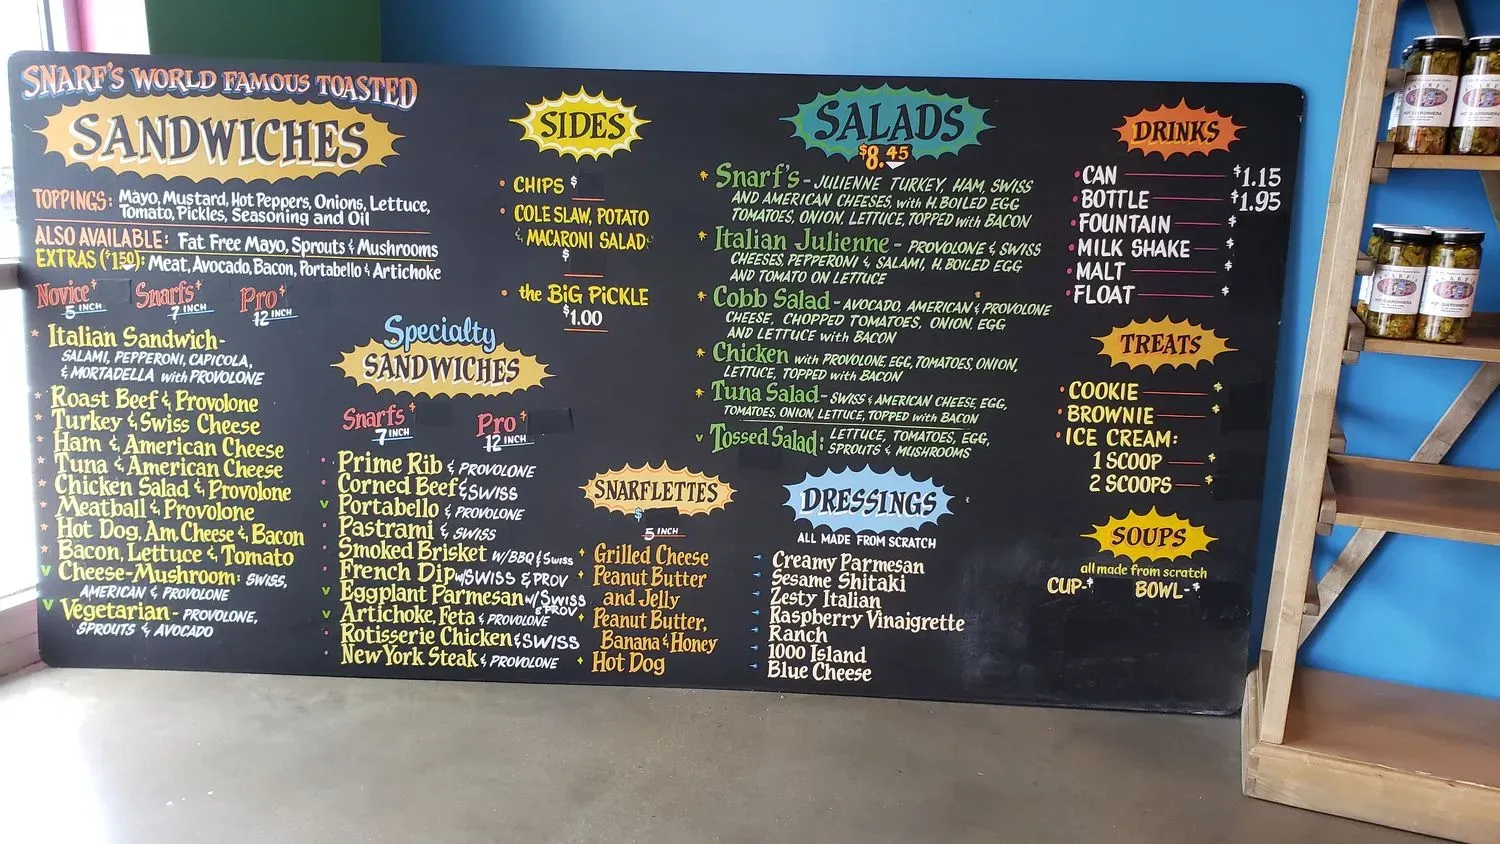 SNARF'S WORLD FAMOUS TOASTED
SANDWICHES
TOPPINGS: Mayo, Mustard, Hot Peppers, Onions, Lettuce,
Tomato, Pickles, Seasoning and Oil
ALSO AVAILABLE: Fat Free Mayo, Sprouts & Mushrooms
EXTRAS ($1.50): Meat, Avocado, Bacon, Portabello & Artichoke
Novice $ Snarfs $ Pro $
5 INCH 7 INCH 12 INCH
Italian Sandwich-
SALAMI, PEPPERONI, CAPICOLA,
& MORTADELLA with PROVOLONE
Roast Beef & Provolone
Turkey & Swiss Cheese
Ham & American Cheese
Tuna & American Cheese
Chicken Salad & Provolone
Meatball & Provolone
Hot Dog, Am. Cheese & Bacon
Bacon, Lettuce & Tomato
v Cheese-Mushroom: SWISS,
AMERICAN & PROVOLONE
v Vegetarian - PROVOLONE,
SPROUTS & AVOCADO
Specialty
SANDWICHES
Snarfs $ Pro $
7 INCH 12 INCH
Prime Rib & PROVOLONE
Corned Beef & SWISS
v Portabello & PROVOLONE
Pastrami & SWISS
Smoked Brisket W/BBQ & Swiss
French Dip W/SWISS & PROV
v Eggplant Parmesan w/ Swiss
& PROV
v Artichoke, Feta & PROVOLONE
Rotisserie Chicken & SWISS
New York Steak & PROVOLONE
SIDES
• CHIPS $
• COLE SLAW, POTATO
& MACARONI SALAD
$
• the BiG PiCKLE
$1.00
SNARFLETTES
$
5 INCH
Grilled Cheese
Peanut Butter
and Jelly
Peanut Butter,
Banana & Honey
Hot Dog
SALADS
$8.45
* Snarf's - JULIENNE TURKEY, HAM, SWISS
AND AMERICAN CHEESES, with H. BOILED EGG
TOMATOES, ONION, LETTUCE, TOPPED with BACON
* Italian Julienne - PROVOLONE & SWISS
CHEESES, PEPPERONI & SALAMI, H. BOILED EGG
AND TOMATO ON LETTUCE
* Cobb Salad - AVOCADO, AMERICAN & PROVOLONE
CHEESE, CHOPPED TOMATOES, ONION, EGG
AND LETTUCE with BACON
* Chicken with PROVOLONE, EGG, TOMATOES, ONION,
LETTUCE, TOPPED with BACON
* Tuna Salad - SWISS & AMERICAN CHEESE, EGG,
TOMATOES, ONION, LETTUCE, TOPPED with BACON
v Tossed Salad: LETTUCE, TOMATOES, EGG,
SPROUTS & MUSHROOMS
DRESSINGS
ALL MADE FROM SCRATCH
Creamy Parmesan
Sesame Shitaki
Zesty Italian
Raspberry Vinaigrette
Ranch
1000 Island
Blue Cheese
DRINKS
• CAN $1.15
• BOTTLE $1.95
• FOUNTAIN $
• MILK SHAKE $
• MALT $
• FLOAT $
TREATS
• COOKIE $
• BROWNIE $
• ICE CREAM:
1 SCOOP $
2 SCOOPS $
SOUPS
all made from scratch
CUP-$ BOWL-$
HOT GIARDINIERA
HOT GIARDINIERA